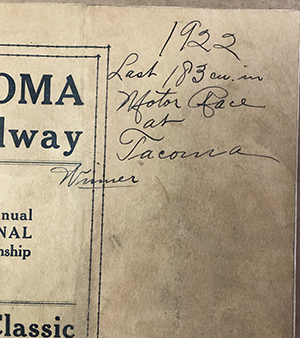 1922
Last 183 cu. in
Motor Race
at
Tacoma
Winner
OMA
dway
nual
NAL
nship
Classic